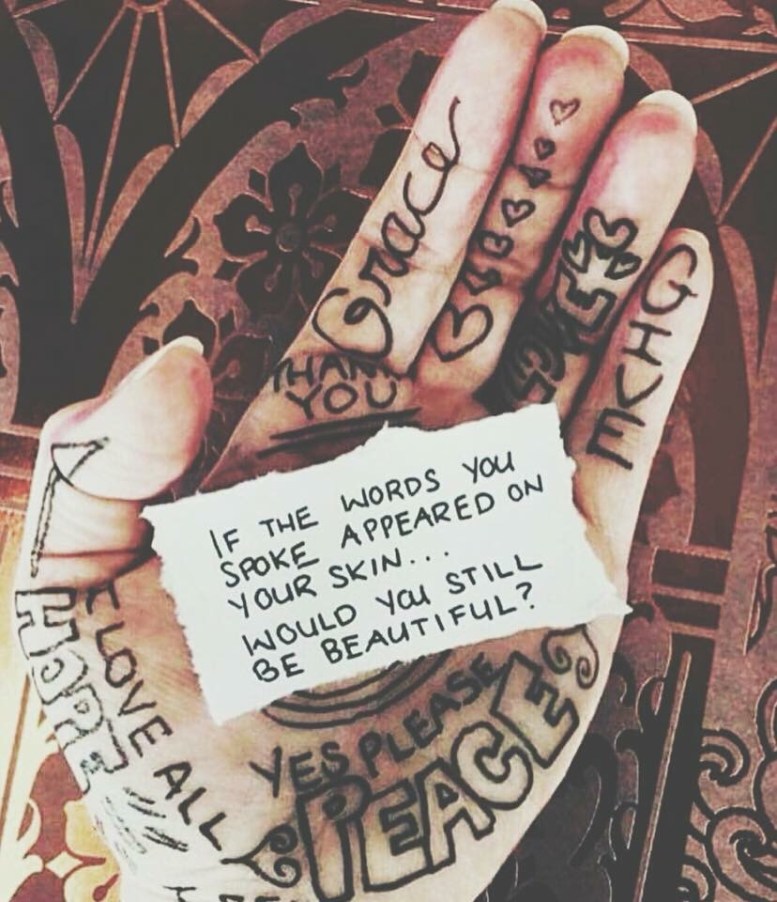 Grace
LOVE
GIVE
THANK
YOU
IF THE WORDS YOU
SPOKE APPEARED ON
YOUR SKIN...
WOULD YOU STILL
BE BEAUTIFUL?
HOPE
I LOVE ALL
YES PLEASE
PEACE